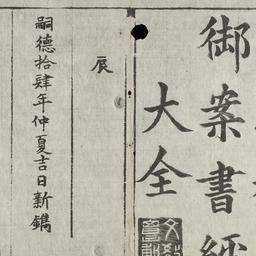 御案書經
大全
辰
嗣德拾肆年仲夏吉日新鐫